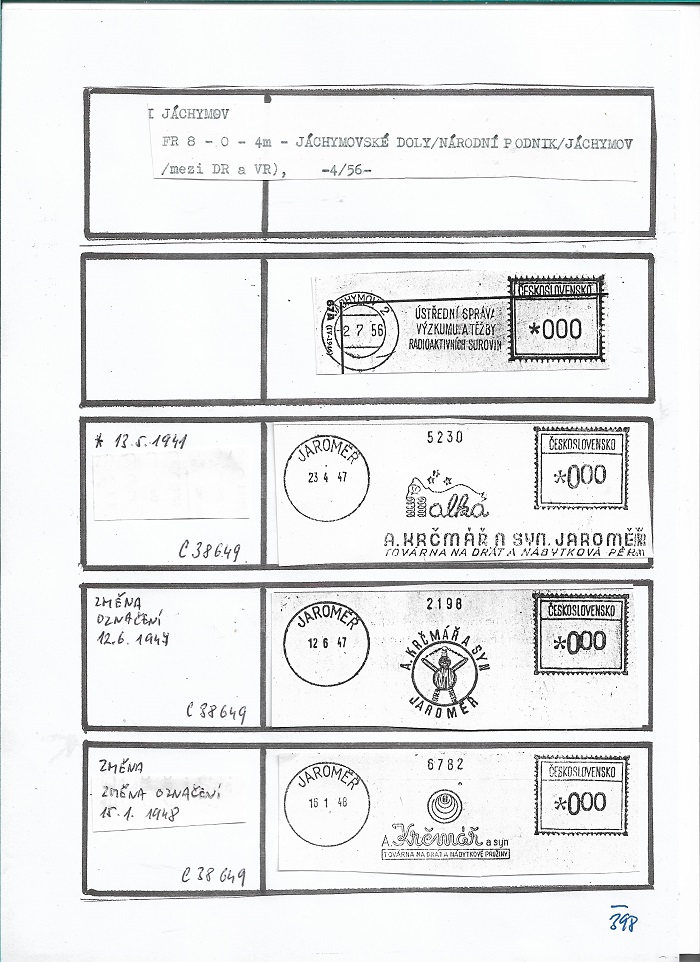 I JÁCHYMOV
FR 8 - 0 - 4m - JÁCHYMOVSKÉ DOLY/NÁRODNÍ PODNIK/JÁCHYMOV
/mezi DR a VR), -4/56-
JÁCHYMOV 2
67A
-2 7 56
ÚSTŘEDNÍ SPRÁVA
VÝZKUMU A TĚŽBY
RADIOAKTIVNÍCH SUROVIN
ČESKOSLOVENSKO
*000
* 13.5.1941
C 38649
JAROMĚŘ
23 4 47
5230
alká
A. KRČMÁŘ A SYN. JAROMĚŘ
TOVÁRNA NA DRÁT A NÁBYTKOVÁ PÉRA
ČESKOSLOVENSKO
*000
ZMĚNA
OZNAČENÍ
12.6.1947
C 38649
JAROMĚŘ
12 6 47
2198
A. KRČMÁŘ A SYN
JAROMĚŘ
ČESKOSLOVENSKO
*000
ZMĚNA
ZMĚNA OZNAČENÍ
15.1. 1948
C 38649
JAROMĚŘ
16 1 48
6782
A. Krčmář a syn
TOVÁRNA NA DRÁT A NÁBYTKOVÉ PRUŽINY
ČESKOSLOVENSKO
*000
398